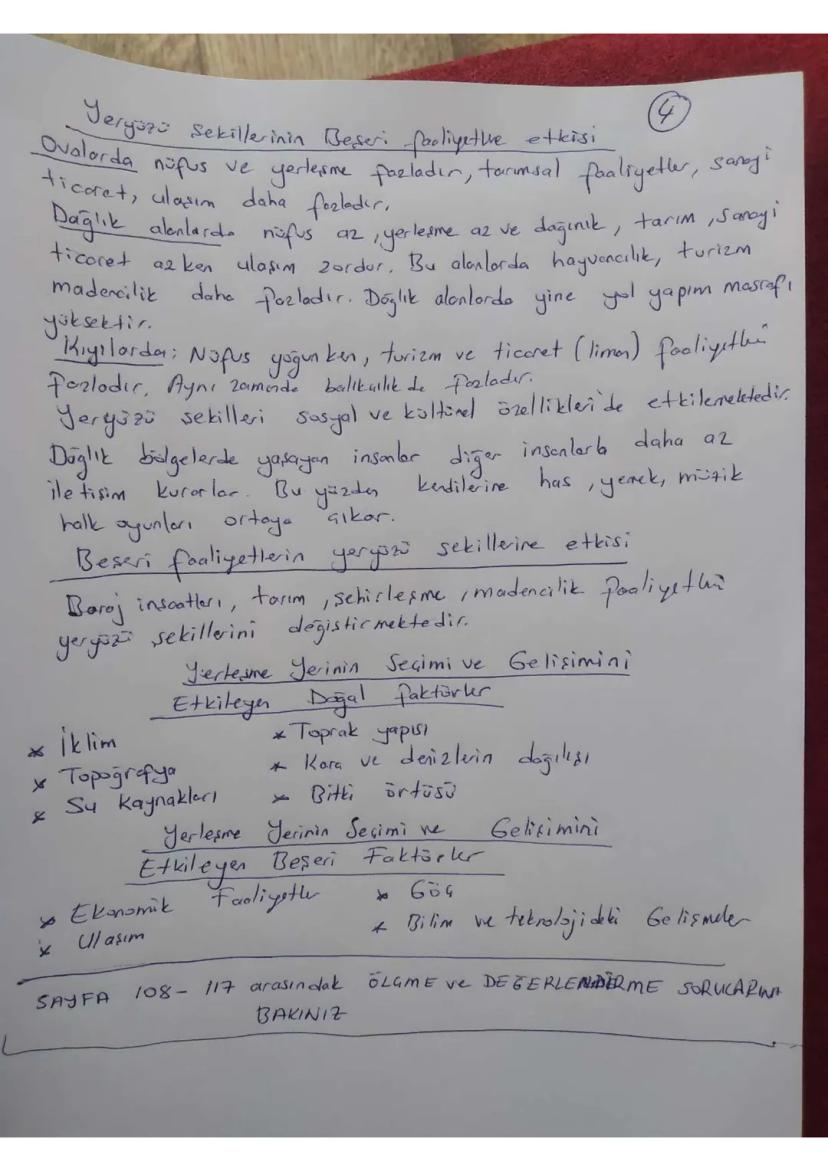 4
Yeryüzü Şekillerinin Beşeri faaliyetlere etkisi
Ovalarda nüfus ve yerleşme fazladır, tarımsal faaliyetler, sanayi
ticaret, ulaşım daha fazladır.
Dağlık alanlarda nüfus az, yerleşme az ve dağınık, tarım, sanayi
ticaret az ken ulaşım zordur. Bu alanlarda hayvancılık, turizm
madencilik daha fazladır. Dağlık alanlarda yine yol yapım masrafı
yüksektir.
Kıyılarda: Nüfus yoğunken, turizm ve ticaret (liman) faaliyetleri
fazladır. Aynı zamanda balıkçılık da fazladır.
Yeryüzü şekilleri sosyal ve kültürel özellikleri de etkilemektedir.
Dağlık bölgelerde yaşayan insanlar diğer insanlarla daha az
iletişim kurarlar. Bu yüzden kendilerine has, yemek, müzik
halk oyunları ortaya çıkar.
Beşeri faaliyetlerin yeryüzü şekillerine etkisi
Baraj inşaatları, tarım, şehirleşme, madencilik faaliyetleri
yeryüzü şekillerini değiştirmektedir.
Yerleşme Yerinin Seçimi ve Gelişimini
Etkileyen Doğal faktörler
* İklim * Toprak yapısı
* Topoğrafya * Kara ve denizlerin dağılışı
* Su Kaynakları * Bitki örtüsü
Yerleşme Yerinin Seçimi ve Gelişimini
Etkileyen Beşeri Faktörler
* Ekonomik Faaliyetler * Göç
* Ulaşım * Bilim ve teknolojideki Gelişmeler
SAYFA 108-117 arasındak ÖLÇME ve DEĞERLENDİRME SORULARINA
BAKINIZ